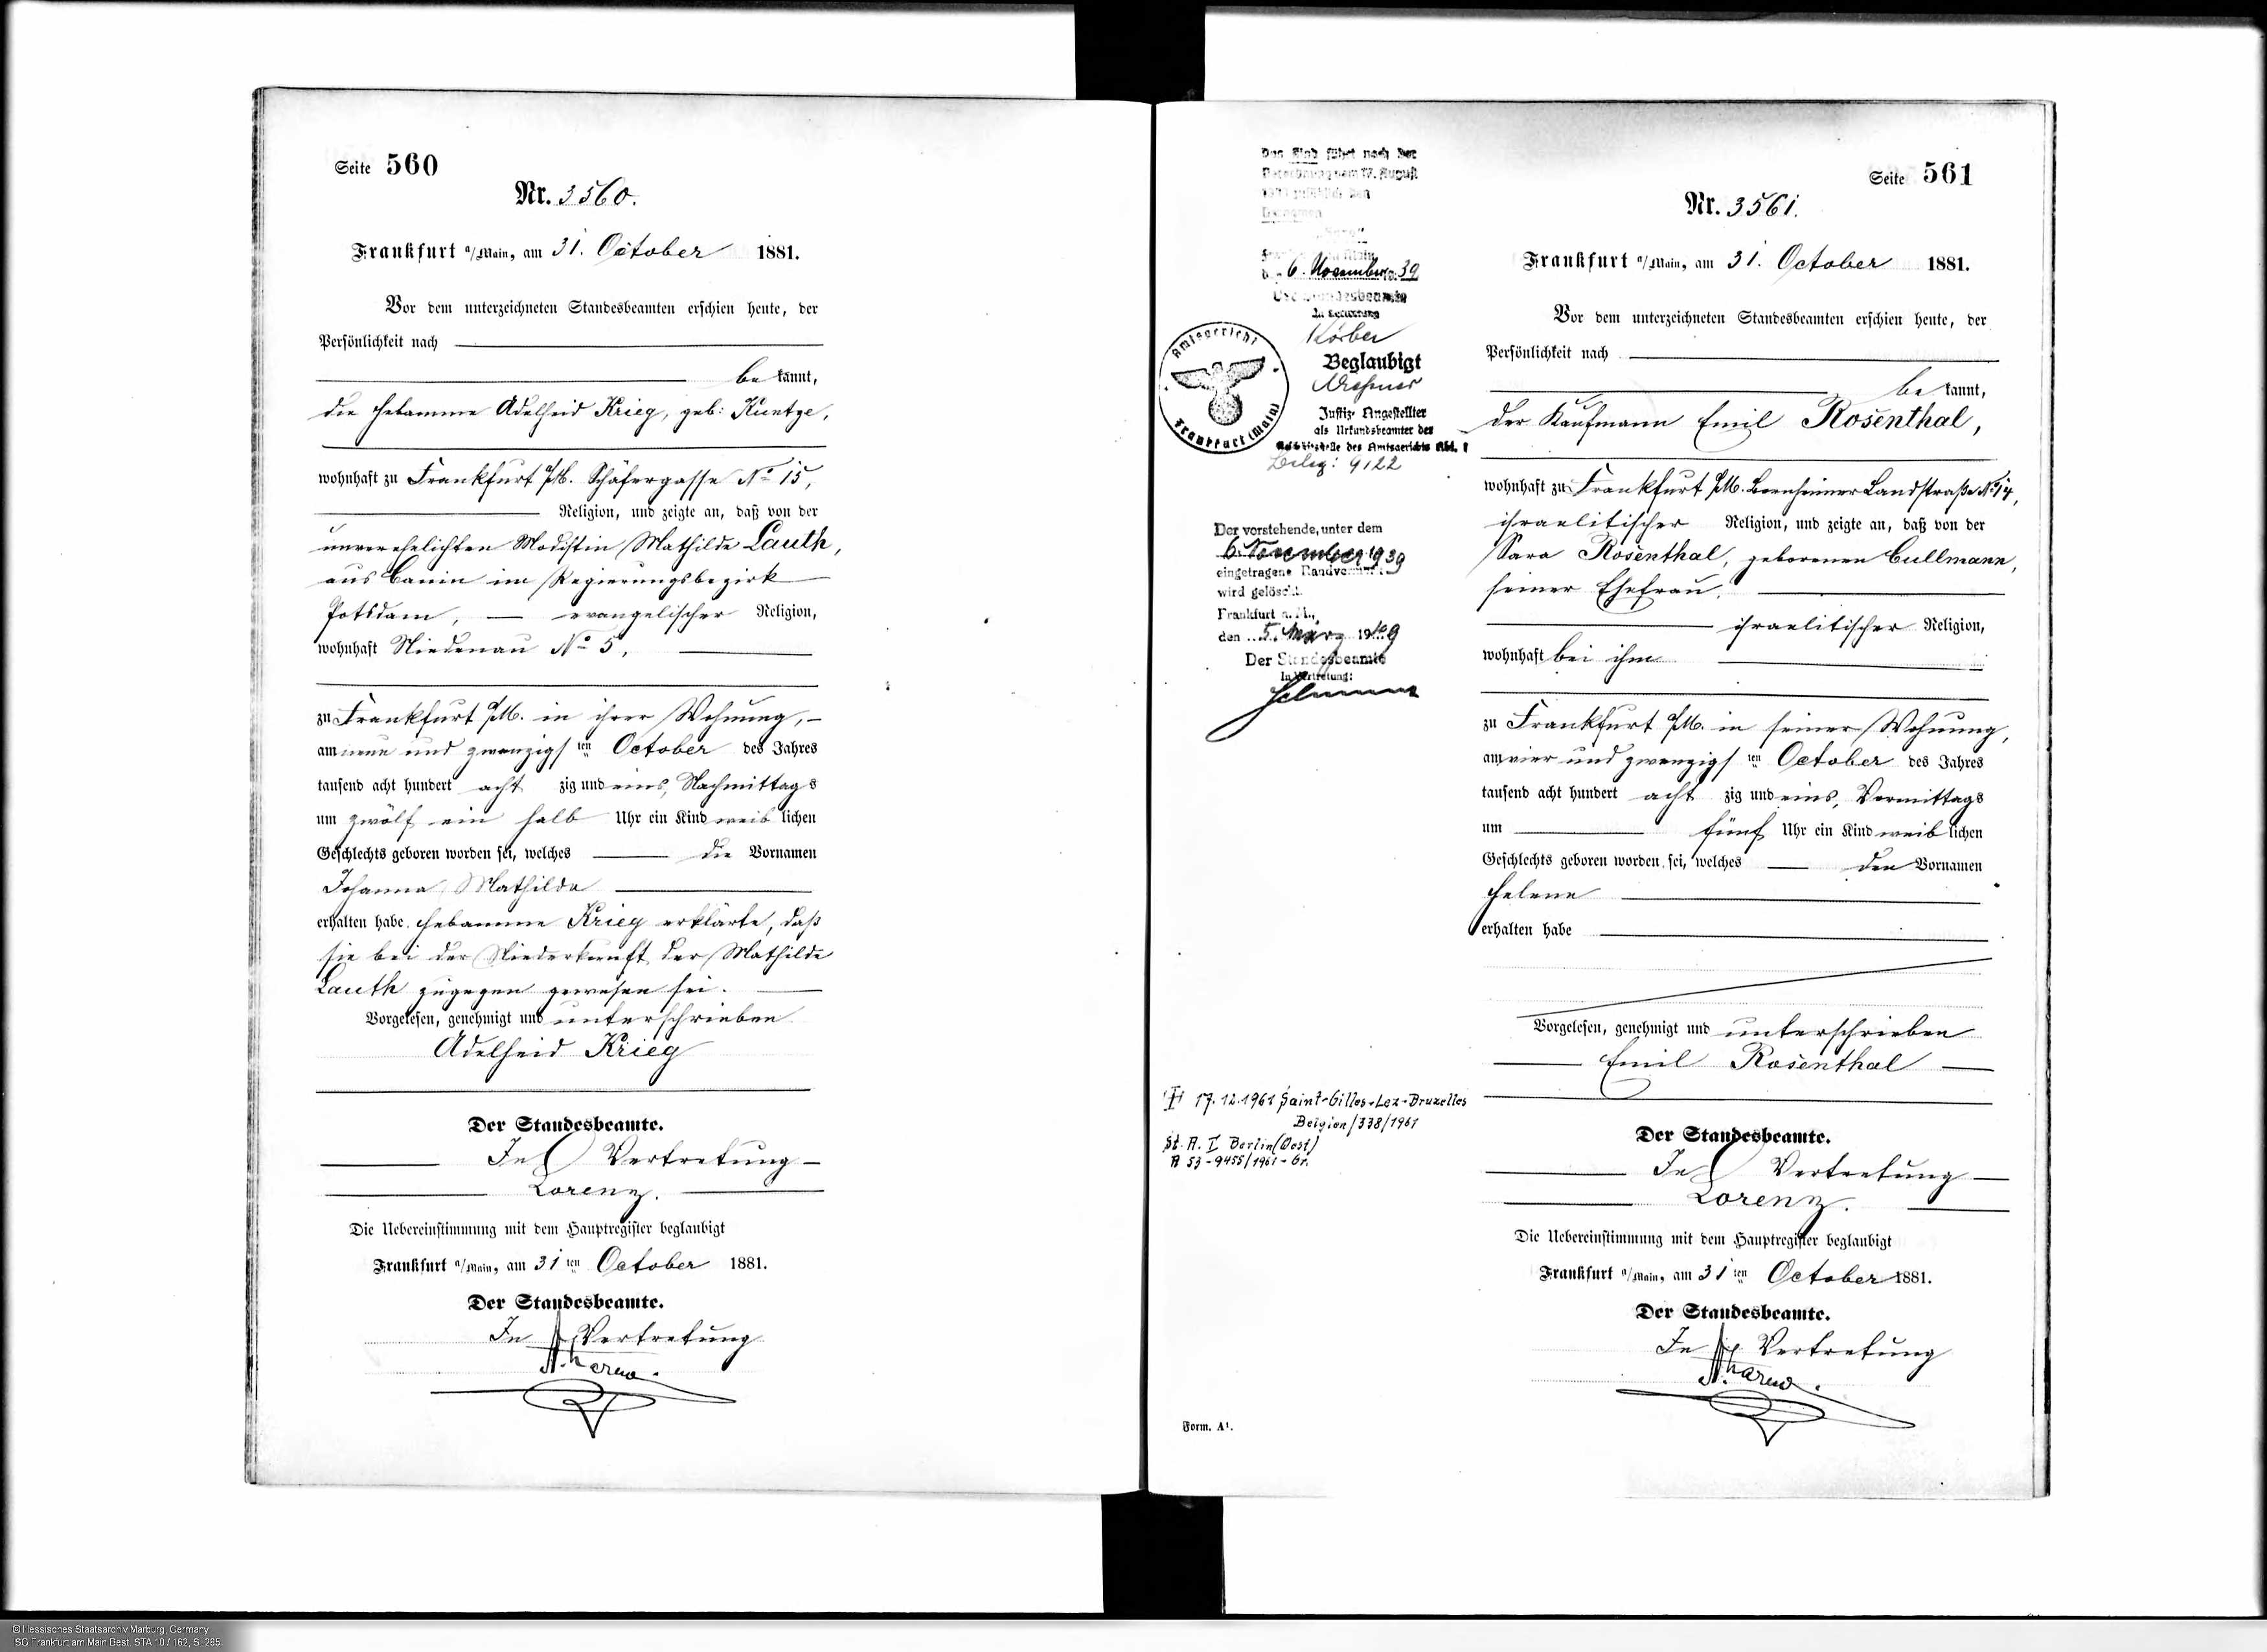 Seite 560
Nr. 3560.
Frankfurt a/Main, am 31. October 1881.
Vor dem unterzeichneten Standesbeamten erschien heute, der
Persönlichkeit nach
bekannt,
die Hebamme Adelheid Krieg, geb: Kuntze,
wohnhaft zu Frankfurt a/M. Schäfergasse No 15,
Religion, und zeigte an, daß von der
unverehelichten Modistin Mathilde Lauth,
aus im Regierungsbezirk
Potsdam, evangelischer Religion,
wohnhaft Niedenau No 5,
zu Frankfurt a/M. in ihrer Wohnung,
am neun und zwanzigsten October des Jahres
tausend acht hundert achtzig und eins, Nachmittags
um zwölf ein halb Uhr ein Kind weiblichen
Geschlechts geboren worden sei, welches die Vornamen
Johanna Mathilde
erhalten habe. Hebamme Krieg erklärte, daß
sie bei der Niederkunft der Mathilde
Lauth zugegen gewesen sei.
Vorgelesen, genehmigt und unterschrieben
Adelheid Krieg
Der Standesbeamte.
In Vertretung
Lorenz.
Die Uebereinstimmung mit dem Hauptregister beglaubigt
Frankfurt a/Main, am 31ten October 1881.
Der Standesbeamte.
In Vertretung
Das Kind führt nach der
Verordnung vom 17. August
6. November 39
Der Standesbeamte
In Vertretung
Körber
Beglaubigt
Justiz-Angestellter
als Urkundsbeamter der
Geschäftsstelle des Amtsgerichts Abt. 1
Amtsgericht
Frankfurt (Main)
Beleg: 9122
Der vorstehende, unter dem
6. November 1939
eingetragene Randvermerk
wird gelöscht.
Frankfurt a. M.,
den 5. März 1949
Der Standesbeamte
In Vertretung:
17.12.1961 Saint-Gilles-Lez-Bruxelles
Belgien/338/1961
St. A. I Berlin (Ost)
A 53-9455/1961-Gr.
Form. A1.
Seite 561
Nr. 3561.
Frankfurt a/Main, am 31. October 1881.
Vor dem unterzeichneten Standesbeamten erschien heute, der
Persönlichkeit nach
bekannt,
der Kaufmann Emil Rosenthal,
wohnhaft zu Frankfurt a/M. Bornheimer Landstraße No 14,
israelitischer Religion, und zeigte an, daß von der
Sara Rosenthal, geborenen Cullmann,
seiner Ehefrau,
israelitischer Religion,
wohnhaft bei ihm
zu Frankfurt a/M. in seiner Wohnung,
am vier und zwanzigsten October des Jahres
tausend acht hundert achtzig und eins, Vormittags
um fünf Uhr ein Kind weiblichen
Geschlechts geboren worden sei, welches den Vornamen
Helene
erhalten habe
Vorgelesen, genehmigt und unterschrieben
Emil Rosenthal
Der Standesbeamte.
In Vertretung
Lorenz.
Die Uebereinstimmung mit dem Hauptregister beglaubigt
Frankfurt a/Main, am 31ten October 1881.
Der Standesbeamte.
In Vertretung
© Hessisches Staatsarchiv Marburg, Germany
ISG Frankfurt am Main Best. STA 10 / 162, S. 285